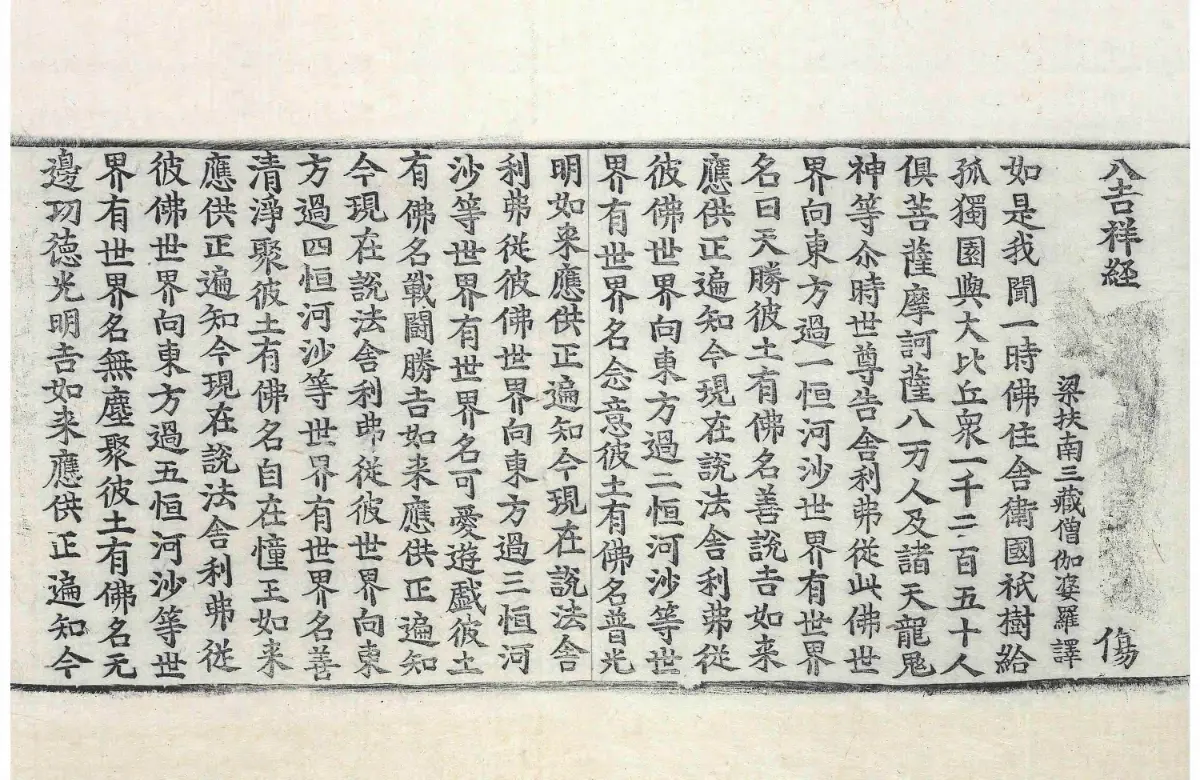 八吉祥経 傷
梁扶南三藏僧伽婆羅譯
如是我聞一時佛住舍衛國祇樹給
孤獨園與大比丘衆一千二百五十人
俱菩薩摩訶薩八万人及諸天龍鬼
神等尒時世尊告舍利弗従此佛世
界向東方過一恒河沙世界有世界
名曰天勝彼土有佛名善說吉如来
應供正遍知今現在說法舍利弗従
彼佛世界向東方過二恒河沙等世
界有世界名念意彼土有佛名普光
明如来應供正遍知今現在說法舍
利弗従彼佛世界向東方過三恒河
沙等世界有世界名可愛遊戲彼土
有佛名戰闘勝吉如来應供正遍知
今現在說法舍利弗従彼世界向東
方過四恒河沙等世界有世界名善
清淨聚彼土有佛名自在幢王如来
應供正遍知今現在說法舍利弗従
彼佛世界向東方過五恒河沙等世
界有世界名無塵聚彼土有佛名无
邊功德光明吉如来應供正遍知今